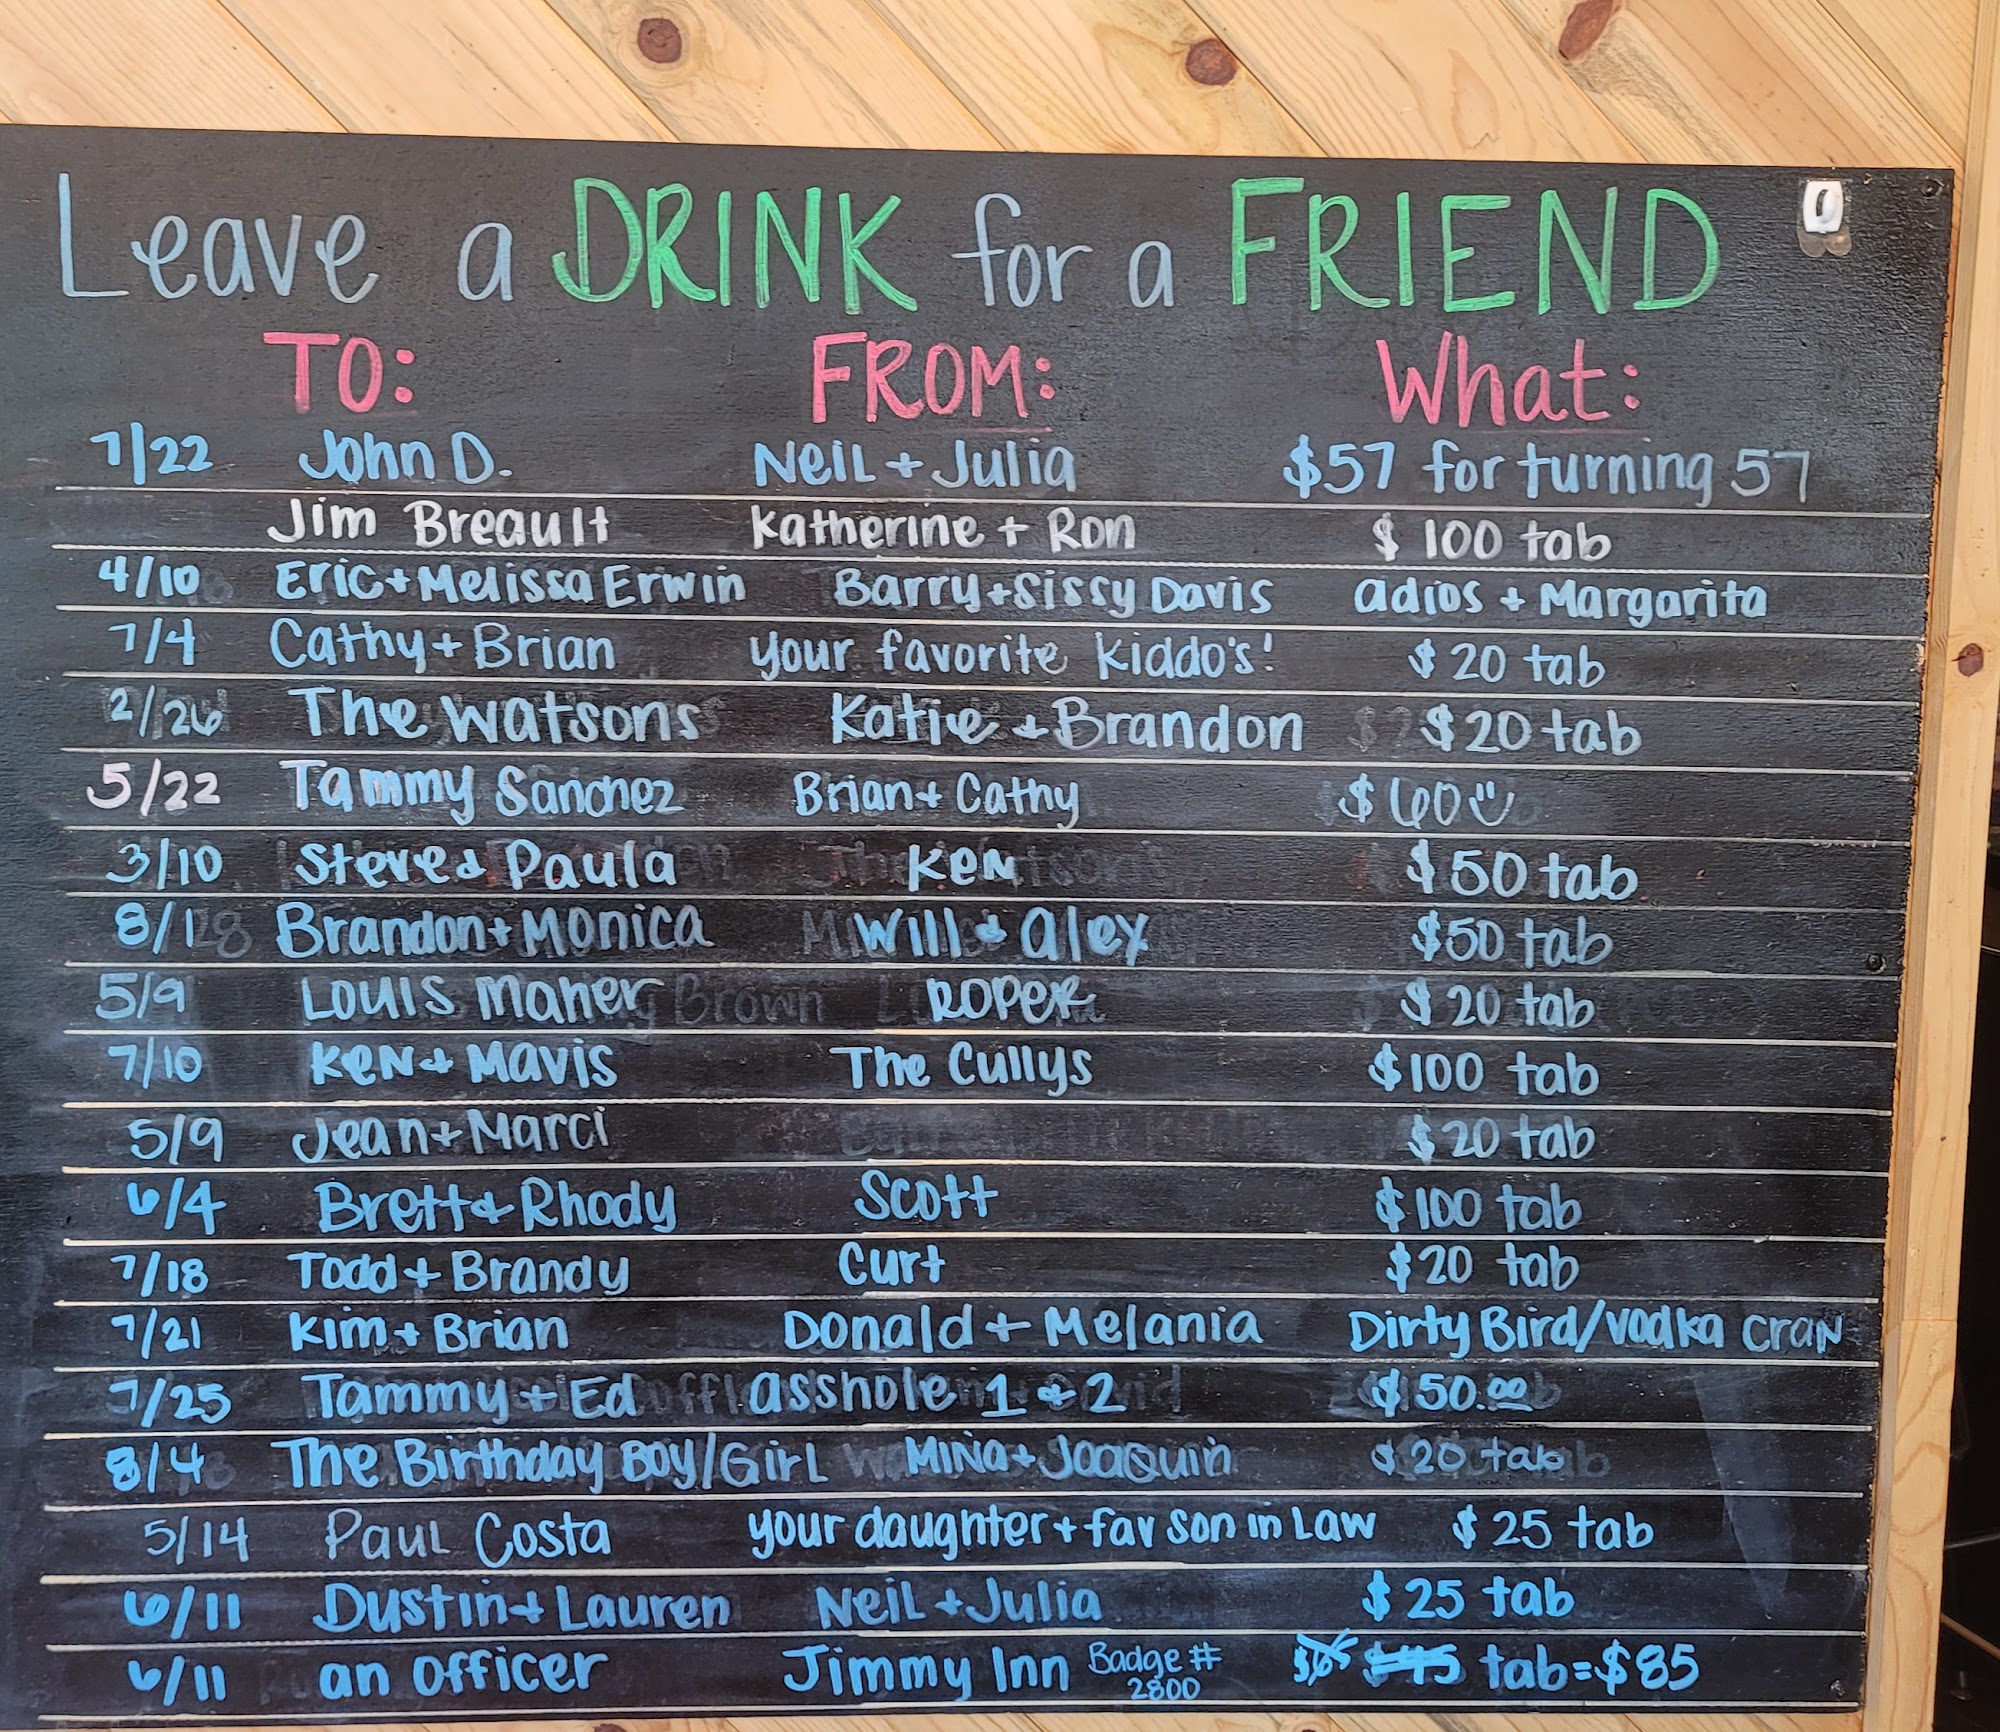 Leave a DRINK for a FRIEND
TO: FROM: What:
7/22 John D. Neil + Julia $57 for turning 57
Jim Breault Katherine + Ron $100 tab
4/10 Eric + Melissa Erwin Barry + Sissy Davis adios + Margarita
7/4 Cathy + Brian your favorite kiddo's! $20 tab
2/26 The Watsons Katie + Brandon $20 tab
5/22 Tammy Sanchez Brian + Cathy $60
3/10 Steve & Paula Ken $50 tab
8/1 Brandon + Monica Will & aley $50 tab
5/9 Louis Maher ROPER $20 tab
7/10 Ken & Mavis The Cullys $100 tab
5/9 Jean + Marci $20 tab
6/4 Brett & Rhody Scott $100 tab
7/18 Todd + Brandy Curt $20 tab
7/21 Kim + Brian Donald + Melania Dirty Bird/vodka cran
7/25 Tammy + Ed asshole 1 & 2 $50.00
8/4 The Birthday Boy/Girl Mina + Joaquin $20 tab
5/14 Paul Costa your daughter + fav son in Law $25 tab
6/11 Dustin & Lauren Neil + Julia $25 tab
6/11 an officer Jimmy Inn Badge # 2800 $45 tab = $85